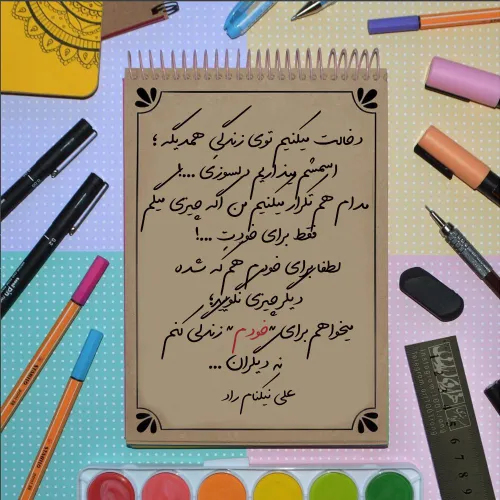 دخالت میکنیم توی زندگیِ همدیگه ؛
اسمشم میذاریم دلسوزی ...!
مدام هم تکرار میکنیم من اگه چیزی میگم
فقط برای خودتِ ...!
لطفا برای خودم هم که شده
دیگر چیزی نگویید؛
میخواهم برای "خودم" زندگی کنم
نه دیگران ...
علی نیکنام راد